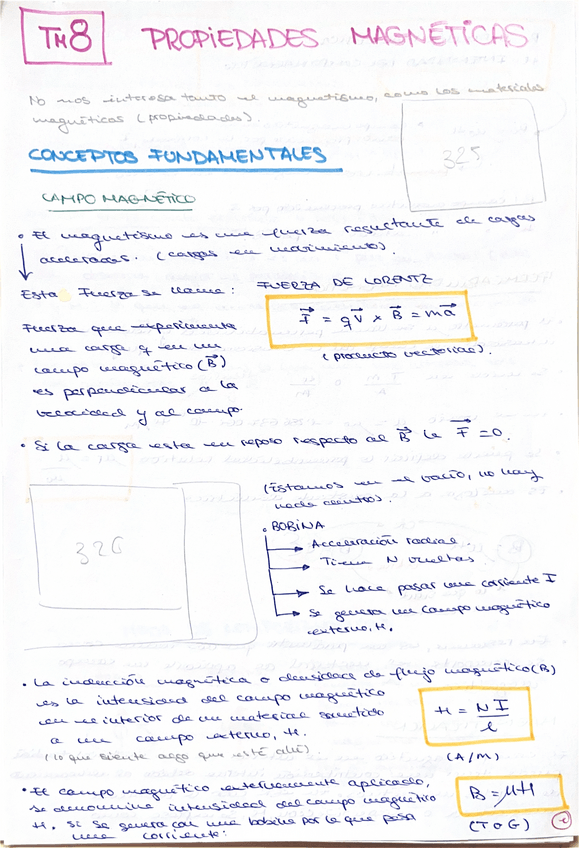 TM8 PROPIEDADES MAGNÉTICAS
No nos interesa tanto el magnetismo, como los materiales
magnéticos (propiedades).
325
CONCEPTOS FUNDAMENTALES
CAMPO MAGNÉTICO
• El magnetismo es una fuerza resultante de cargas
aceleradas. (cargas en movimiento)
Esta Fuerza se llama: FUERZA DE LORENTZ
F⃗ = qv⃗ × B⃗ = ma⃗
(producto vectorial).
Fuerza que experimenta
una carga q en un
campo magnético (B⃗)
es perpendicular a la
velocidad y al campo.
• Si la carga esta en reposo respecto al B⃗ la F⃗ = 0.
326
(Estamos en el vacío, no hay
nada dentro).
• BOBINA
→ Acceleración radial.
→ Tiene N vueltas
→ Se hace pasar una corriente I
→ Se genera un campo magnético
externo, H.
• La inducción magnética o densidad de flujo magnético (B)
es la intensidad del campo magnético
en el interior de un material sometido
a un campo externo, H.
(lo que siente algo que esté allí).
H = NI/l
(A/M)
• El campo magnético externamente aplicado,
se denomina intensidad del campo magnético
H. Si se genera con una bobina por la que pasa
una corriente:
B = μH
(T o G)